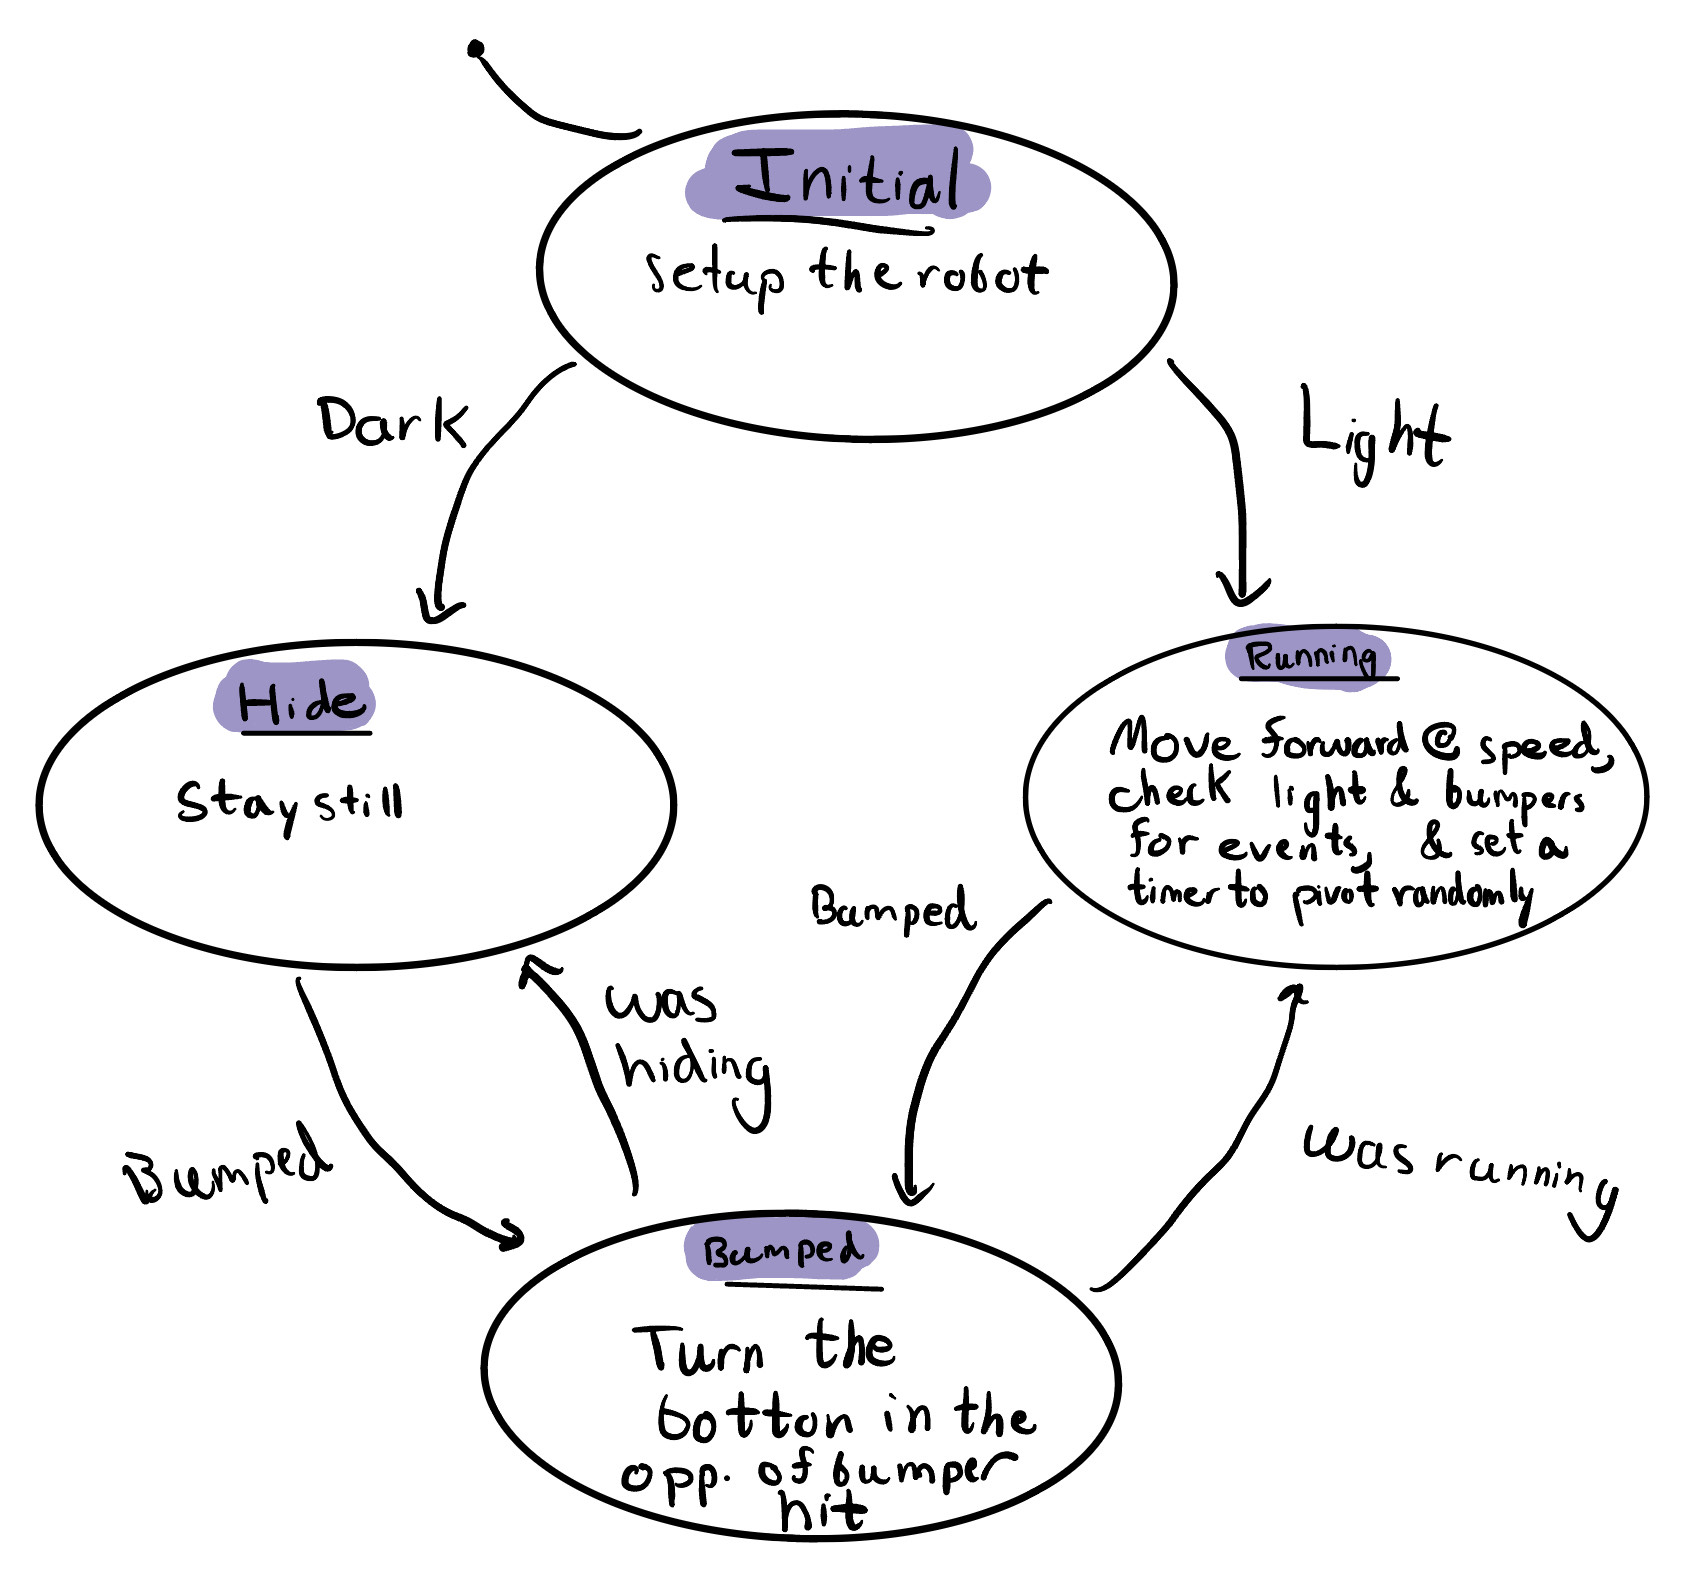 Initial
setup the robot
Dark
Light
Hide
Stay still
Running
Move forward @ speed,
check light & bumpers
for events, & set a
timer to pivot randomly
Bumped
was
hiding
Bumped
was running
Bumped
Turn the
botton in the
opp. of bumper
hit